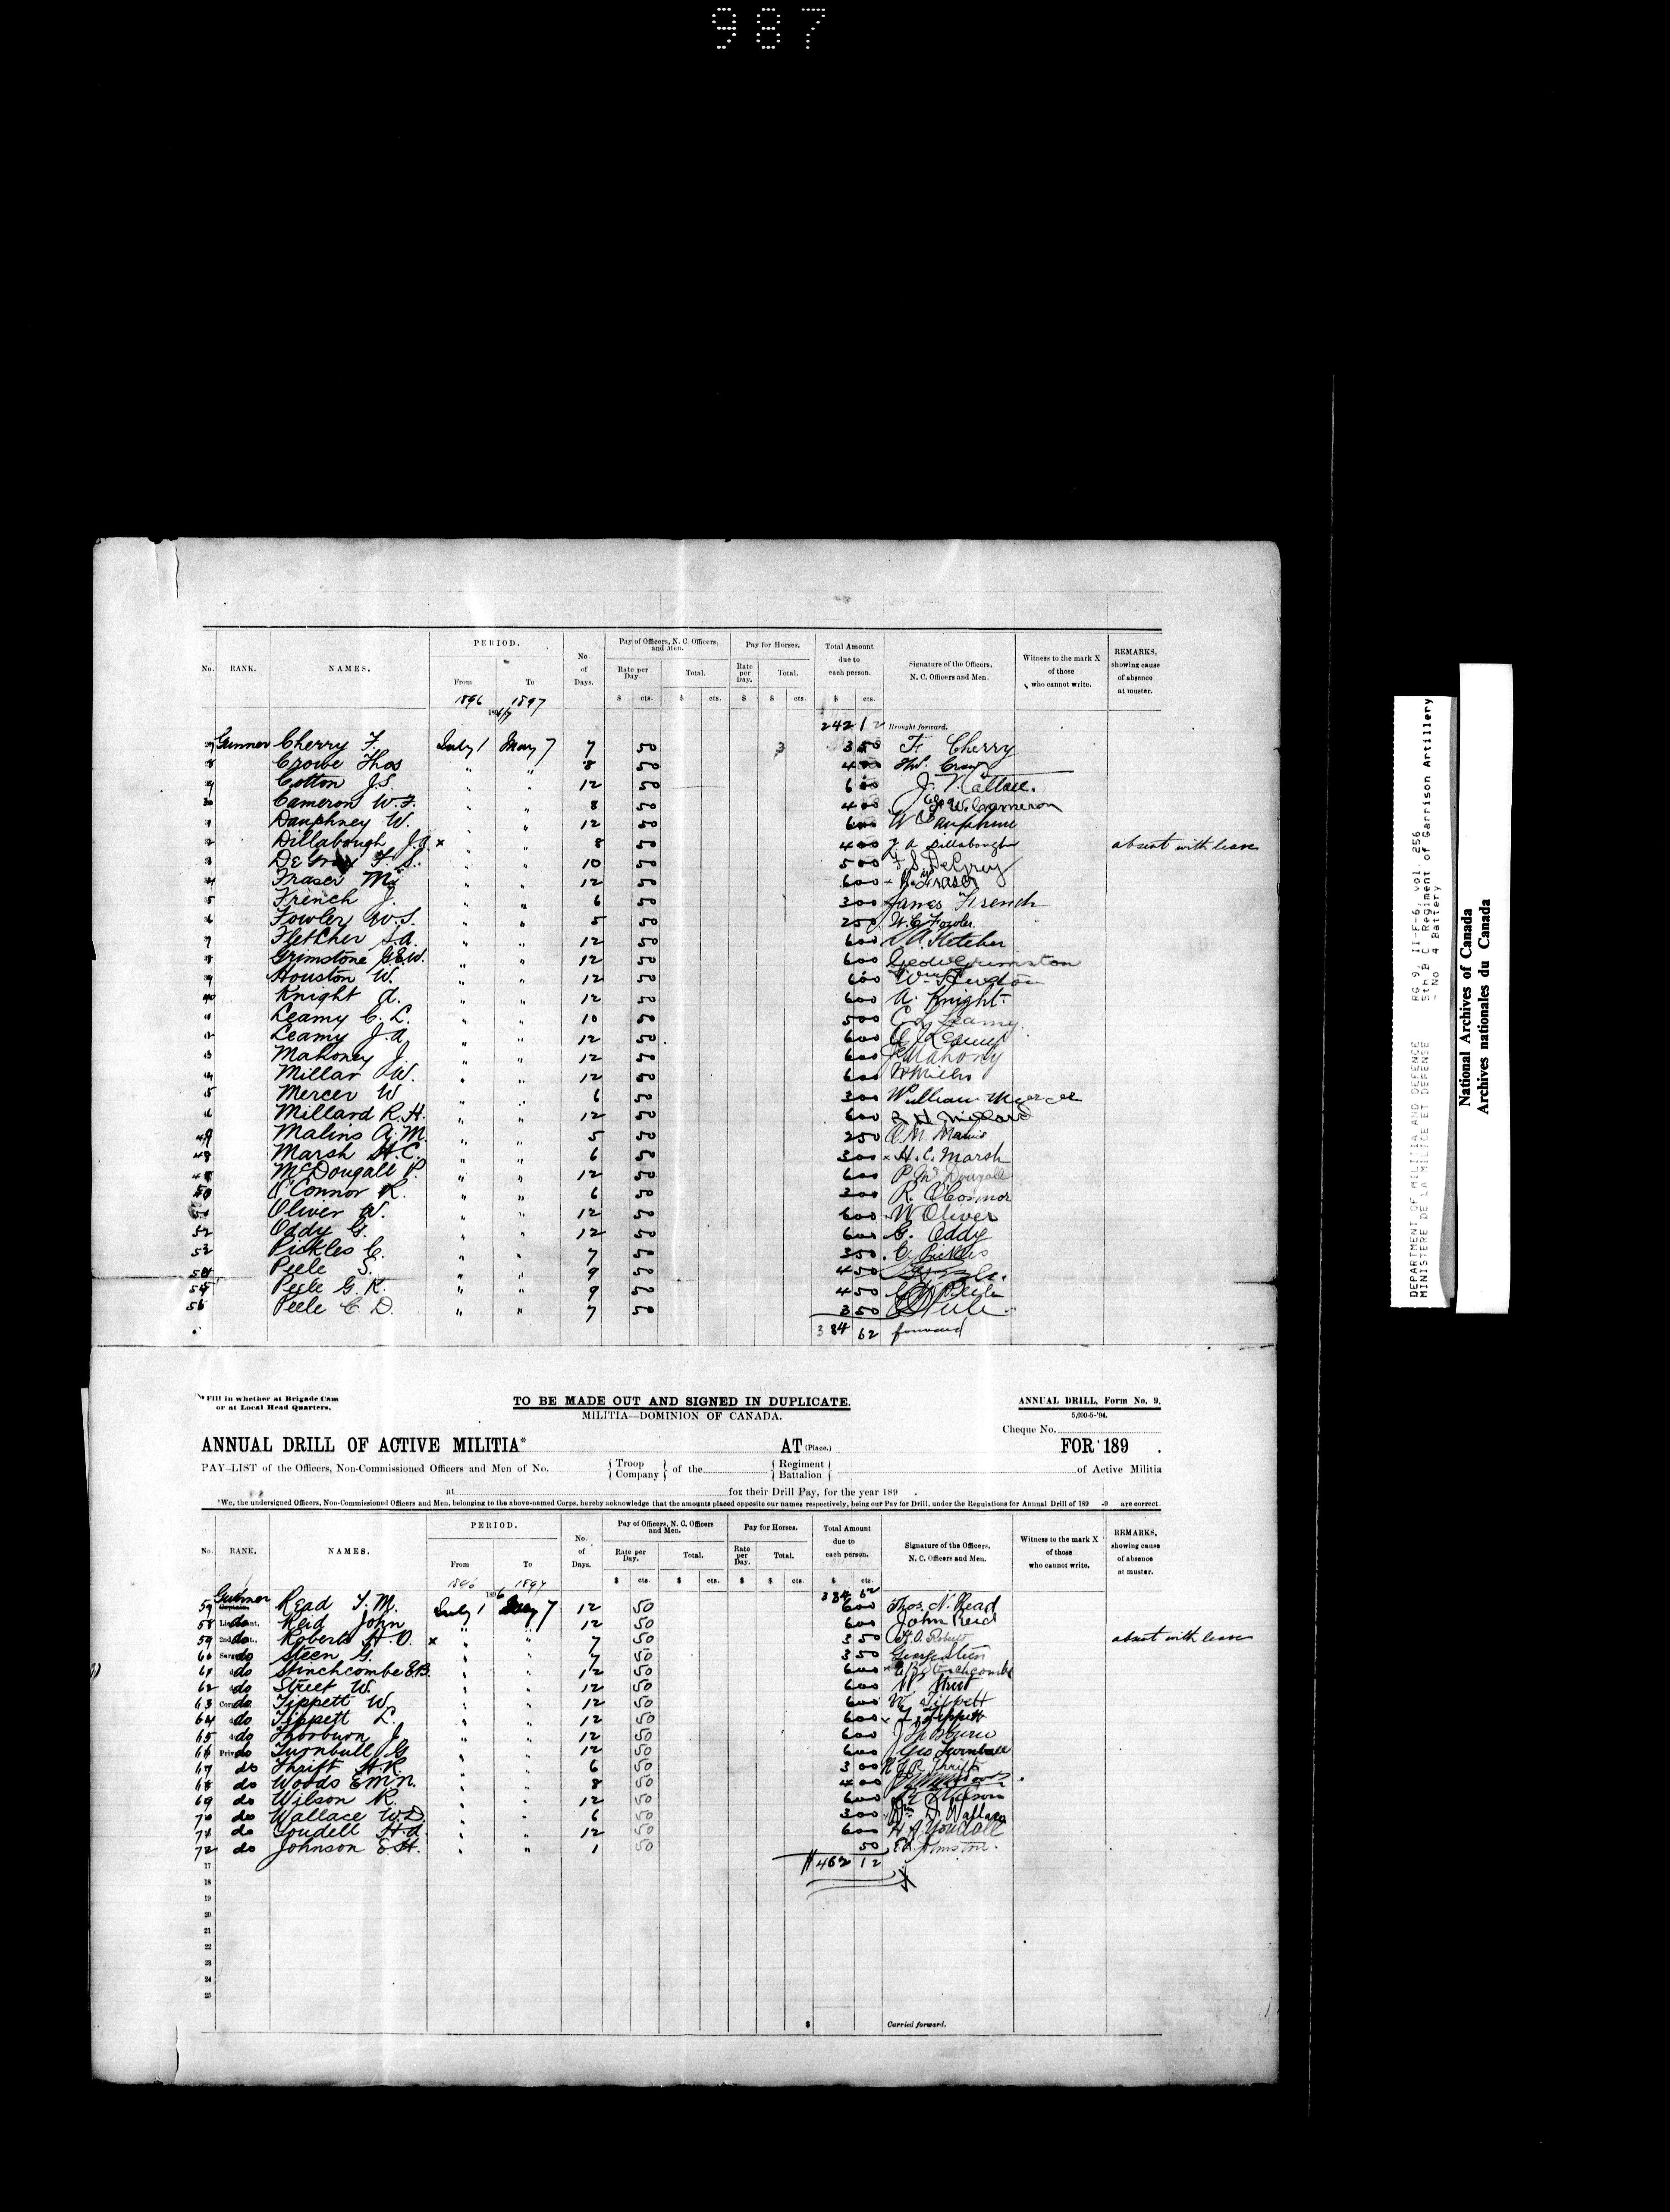 987
PERIOD.
Pay of Officers, N. C. Officers, and Men.
Pay for Horses.
Total Amount due to each person.
REMARKS, showing cause of absence at muster.
No. RANK. NAMES. From To No. of Days. Rate per Day. Total. Rate per Day. Total. Signature of the Officers, N. C. Officers and Men. Witness to the mark X of those who cannot write.
$ cts. $ cts. $ $ cts. $ cts.
1896 1897
242 12 Brought forward.
Gunner Cherry F. July 1 May 7 7 50 3 50 F Cherry
8 Crowe Thos " " 8 50 4 00 Thos. Crowe
9 Cotton J.S. " " 12 50 6 00
30 Cameron W.F. " " 8 50 4 00 W. Cameron
1 Dauphney W. " " 12 50 6 00 W Dauphine
2 Dillabough J.A. x " " 8 50 4 00 J A Dillabough absent with leave
3 DeGrey F. S. " " 10 50 5 00 F. S. DeGrey
4 Fraser " " 12 50 6 00 Fraser
5 French J. " " 6 50 3 00 James French
6 Fowler W.S. " " 5 50 2 50 Fowler
7 Fletcher A. " " 12 50 6 00 A. Fletcher
8 Grimstone G.E.W. " " 12 50 6 00 Geo W Grimston
9 Houston W. " " 12 50 6 00 Wm Houston
40 Knight A. " " 12 50 6 00 A. Knight
1 Leamy C. L. " " 10 50 5 00 C L Leamy
2 Leamy J.A " " 12 50 6 00 Leamy
3 Mahoney J. " " 12 50 6 00 J Mahony
4 Millar W. " " 12 50 6 00 W Millar
5 Mercer W " " 6 50 3 00 William Mercer
6 Millard R.H. " " 12 50 6 00 R H Millard
Malins A.M. " " 5 50 2 50 A. M. Malins
48 Marsh H.C. " " 6 50 3 00 x H. C. Marsh
McDougall P. " " 12 50 6 00 P. McDougall
50 O'Connor R. " " 6 50 3 00 R. O'Connor
Oliver W. " " 12 50 6 00 W Oliver
52 Oddy G. " " 12 50 6 00 G. Oddy
53 Pickles C. " " 7 50 3 50 C. Pickles
54 Peele S. " " 9 50 4 50
55 Peele G. K. " " 9 50 4 50 G K Peele
56 Peele C. D. " " 7 50 3 50 C D Peele
384 62 forward
*Fill in whether at Brigade Cam
or at Local Head Quarters.
TO BE MADE OUT AND SIGNED IN DUPLICATE.
ANNUAL DRILL, Form No. 9.
MILITIA—DOMINION OF CANADA.
5,000-5-'94.
Cheque No.
ANNUAL DRILL OF ACTIVE MILITIA* AT (Place.) FOR 189 .
PAY-LIST of the Officers, Non-Commissioned Officers and Men of No. { Troop Company } of the { Regiment Battalion } of Active Militia
at for their Drill Pay, for the year 189 .
"We, the undersigned Officers, Non-Commissioned Officers and Men, belonging to the above-named Corps, hereby acknowledge that the amounts placed opposite our names respectively, being our Pay for Drill, under the Regulations for Annual Drill of 189 -9 are correct.
PERIOD.
Pay of Officers, N. C. Officers and Men.
Pay for Horses.
Total Amount due to each person.
REMARKS, showing cause of absence at muster.
No. RANK. NAMES. From To No. of Days. Rate per Day. Total. Rate per Day. Total. Signature of the Officers, N. C. Officers and Men. Witness to the mark X of those who cannot write.
$ cts. $ cts. $ $ cts. $ cts.
1896 1897
384 62
57 Gunner Read T. M. July 1 May 7 12 50 6 00 Thos. N. Read
58 do Reid John " " 12 50 6 00 John Reid
59 do Roberts H. O. x " " 7 50 3 50 H. O. Roberts absent with leave
60 do Steen G. " " 7 50 3 50 George Steen
61 do Stinchcombe E.B. " " 12 50 6 00 E B Stinchcombe
62 do Street W. " " 12 50 6 00 W Street
63 do Tippett W. " " 12 50 6 00 W Tippett
64 do Tippett L. " " 12 50 6 00 L Tippett
65 do Thorburn J. " " 12 50 6 00 J Thorburn
66 do Turnbull G " " 12 50 6 00 Geo Turnbull
67 do Thrift H.R. " " 6 50 3 00 Thrift
68 do Woods E.M.N. " " 8 50 4 00
69 do Wilson R. " " 12 50 6 00 R Wilson
70 do Wallace W.D. " " 6 50 3 00 Wm D. Wallace
71 do Youdell H.A. " " 12 50 6 00 H A Youdall
72 do Johnson E.H. " " 1 50 50 E.H. Johnson.
17 $ 462 12
18
19
20
21
22
23
24
25
$ Carried forward.
DEPARTMENT OF MILITIA AND DEFENCE RG 9, II-F-6, vol. 256
MINISTERE DE LA MILICE ET DEFENSE 5th B C Regiment of Garrison Artillery
- No 4 Battery
National Archives of Canada
Archives nationales du Canada